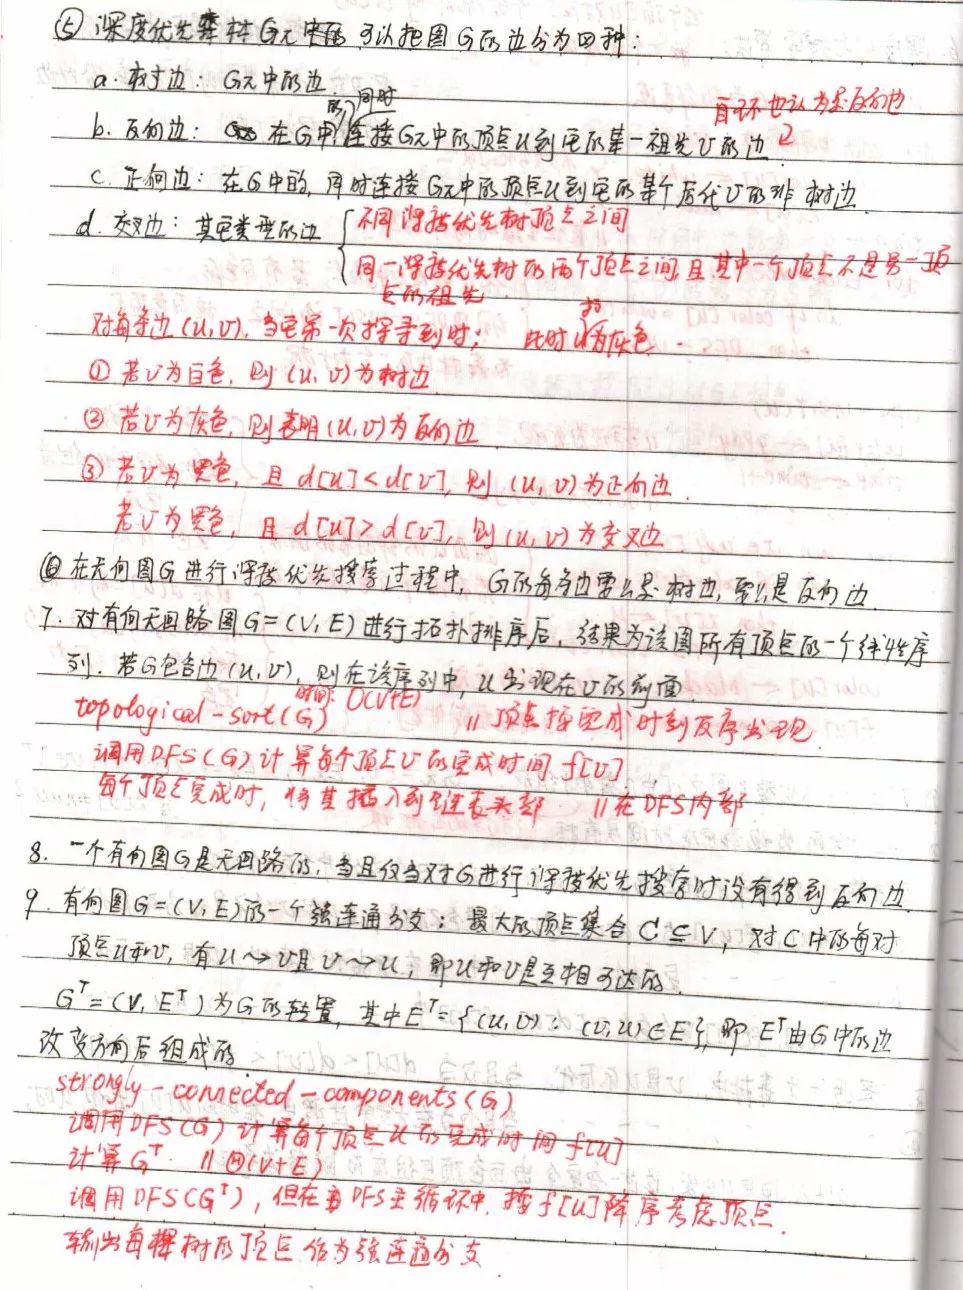 ⑤ 深度优先森林Gπ中的 可以把图G的边分为四种:
a. 树边: Gπ中的边.
b. 反向边: 在G中的,同时连接Gπ中的顶点u到它的某一祖先v的边. 自环也认为是反向边
c. 正向边: 在G中的, 同时连接Gπ中的顶点u到它的某个后代v的非树边.
d. 交叉边: 其它类型的边 { 不同深度优先树顶点之间
同一深度优先树的两个顶点之间,且其中一个顶点不是另一顶
点的祖先
对每条边(u,v), 当它第一次探寻到时; 此时u为灰色.
① 若v为白色, 则(u,v)为树边.
② 若v为灰色, 则表明(u,v)为反向边
③ 若v为黑色, 且d[u]<d[v], 则(u,v)为正向边.
若v为黑色, 且d[u]>d[v], 则(u,v)为交叉边
⑥ 在无向图G进行深度优先搜索过程中, G的每条边要么是树边, 要么是反向边.
7. 对有向无回路图G=(V,E)进行拓扑排序后, 结果为该图所有顶点的一个线性序
列. 若G包含边(u,v), 则在该序列中, u出现在v的前面.
topological-sort(G) 时间: O(V+E) // 顶点按完成时刻反序出现.
调用DFS(G)计算每个顶点v的完成时间f[v]
每个顶点完成时, 将其插入到链表头部 // 在DFS内部
8. 一个有向图G是无回路的, 当且仅当对G进行深度优先搜索时没有得到反向边.
9. 有向图G=(V,E)的一个强连通分支: 最大的顶点集合C⊆V, 对C中的每对
顶点u和v, 有u⤳v且v⤳u, 即u和v是互相可达的.
Gᵀ=(V,Eᵀ)为G的转置, 其中Eᵀ={(u,v): (v,u)∈E}, 即Eᵀ由G中的边
改变方向后组成的.
strongly-connected-components(G)
调用DFS(G)计算每个顶点u的完成时间f[u]
计算Gᵀ. // Θ(V+E)
调用DFS(Gᵀ), 但在DFS主循环中, 按f[u]降序考虑顶点.
输出每棵树的顶点作为强连通分支.